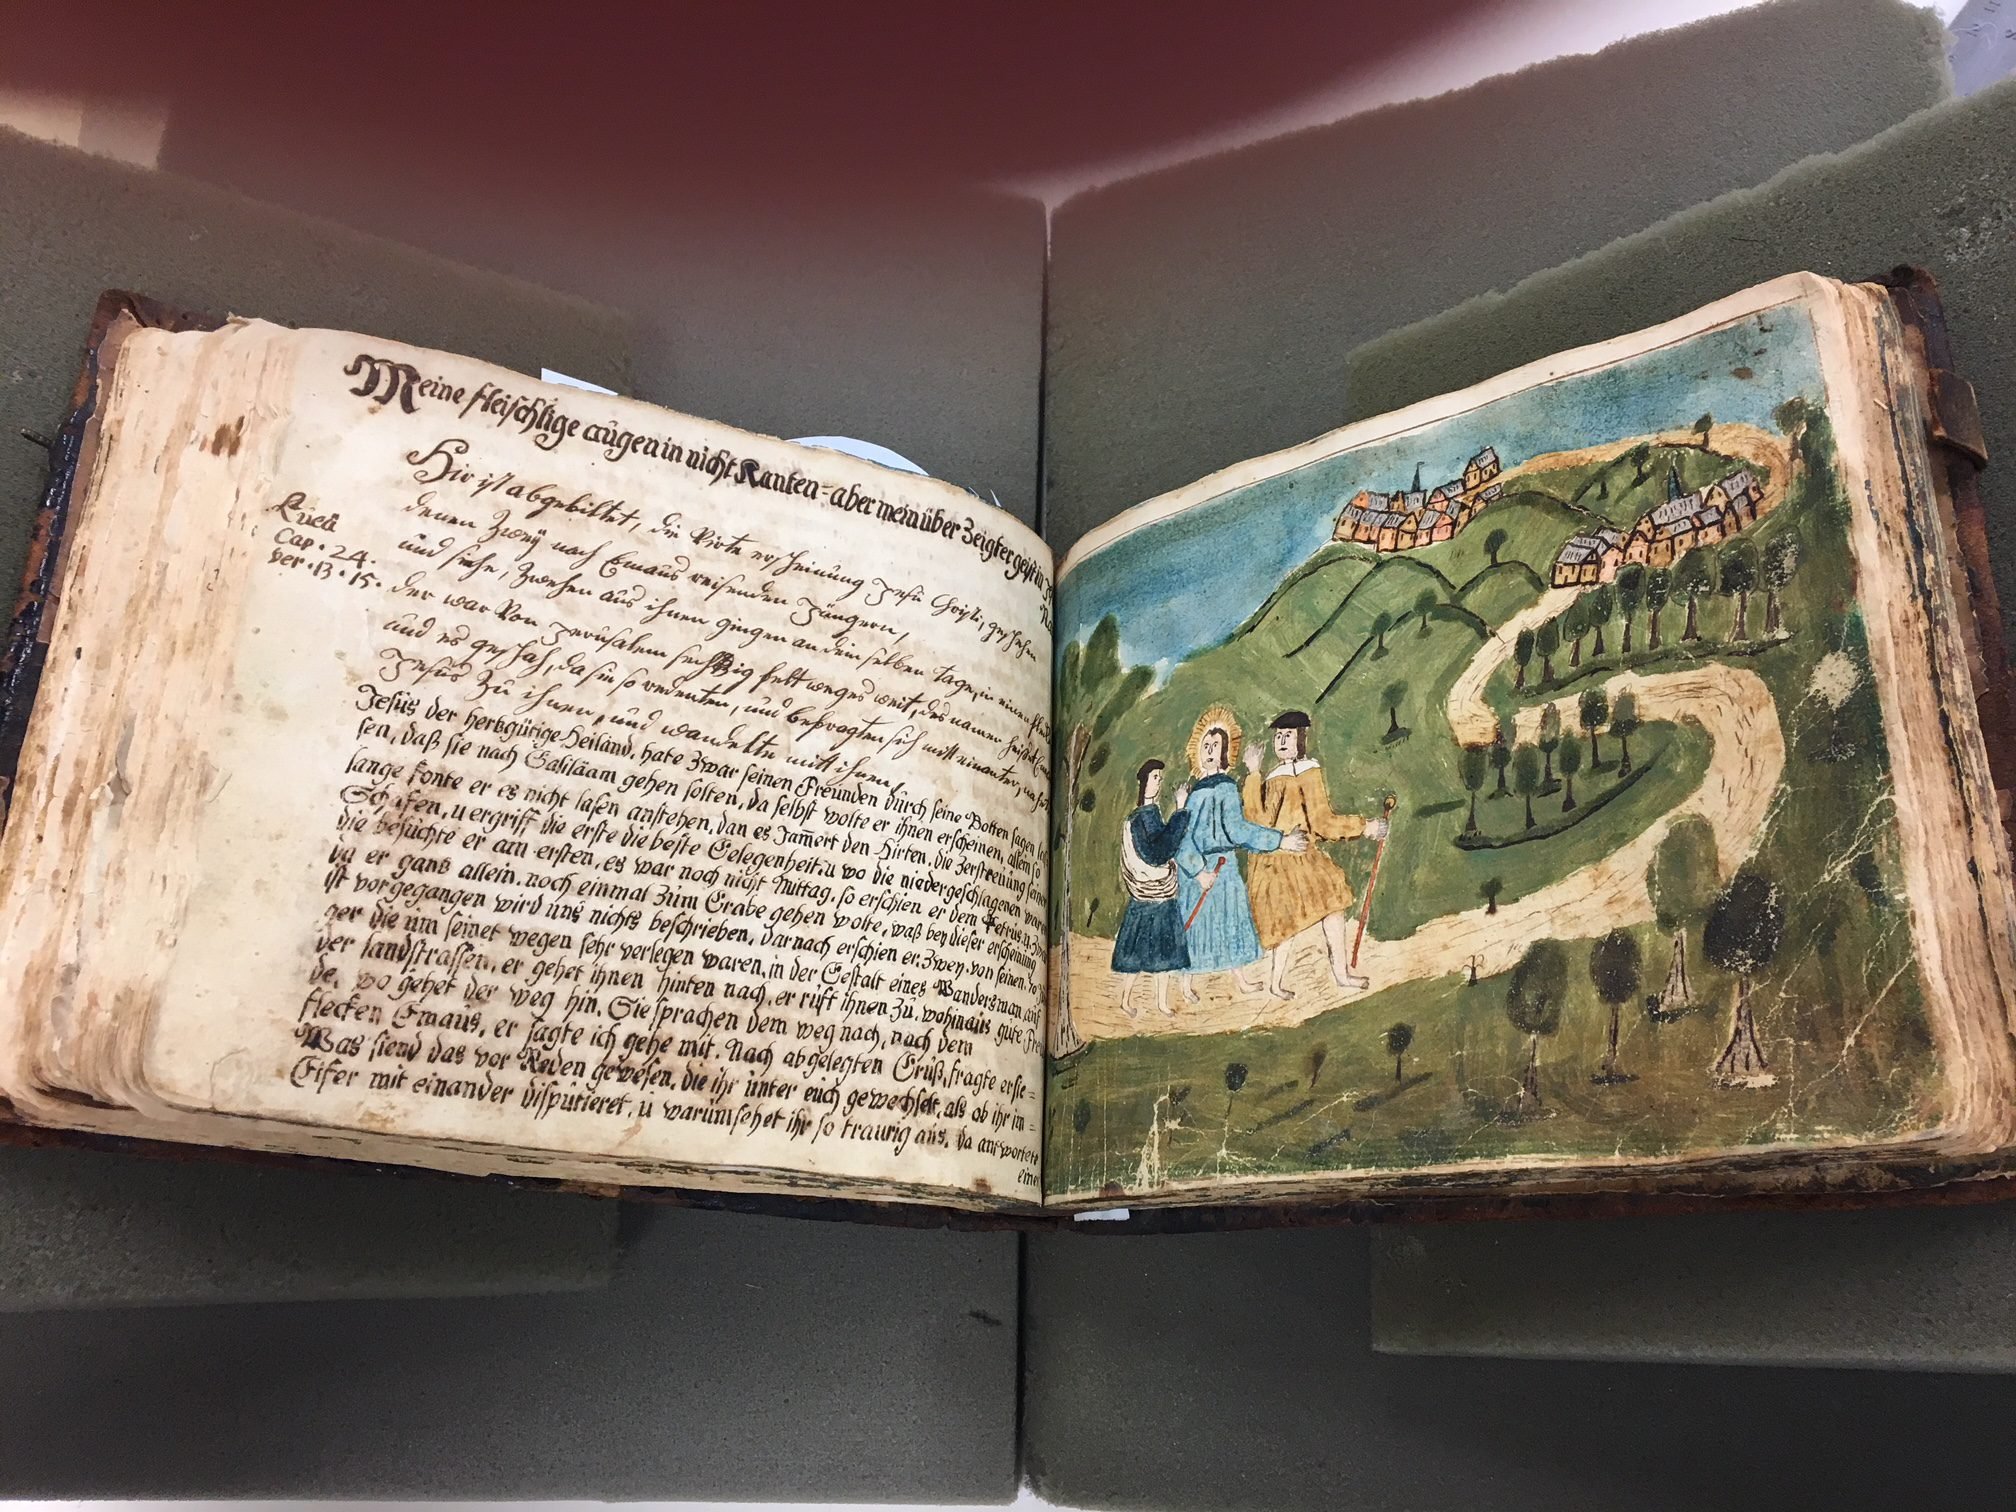 Meine fleischlige augen in nicht Kanten = aber mein über Zeigter geist in
Hir ist abgebiltet, die Virte erscheinung Jesu Christi, geschehen
denen Zweÿ nach Emaus reisenden Jüngern,
Lucä
Cap. 24.
ver. 13. 15.
und siehe, Zwehen aus ihnen gingen an dem selben tage, in einen
der war Von Jerusalem sechtzig felt weges weit, des namer heist
und es geschah, da sie so redenten, und befragten sich mitt einanter,
Jesus Zu ihnen, und wandelte mitt ihnen,
Jesüs der hertzgütige Heiland, hate Zwar seinen Freünden dürch seine Botten sagen
sen, daß sie nach Galiläam gehen solten, da selbst wolte er ihnen erscheinen, allein so
lange konte er es nicht lasen anstehen, dan es Jam̄ert den Hirten, die Zerstreüüng seiner
Schafen, u ergriff die erste die beste Gelegenheit, u wo die niedergeschlagenen waren
die besüchte er am ersten, es war noch nicht Mittag, so erschien er dem Petrüs
da er gans allein, noch einmal Züm Grabe gehen wolte, waß beÿ dieser erscheinüng
ist vorgegangen wird üns nichts beschrieben, Darnach erschien er, Zweÿ, von seinen
ger die üm seinet wegen sehr verlegen waren, in der Gestalt eines Wandersman, auf
der landstrassen, er gehet ihnen hinten nach, er rüft ihnen Zü, wohinaüs güte
de, wo gehet der weg hin, Sie sprachen dem weg nach, nach dem
flecken Emaüs, er sagte ich gehe mit, Nach abgelegten Grüß, fragte er sie =
Was siend das vor Reden gewesen, die ihr ünter eüch gewechselt, als ob ihr im =
Eifer mit einander dispütieret, ü warüm sehet ihr so traurig aüs, da antwortete
einer